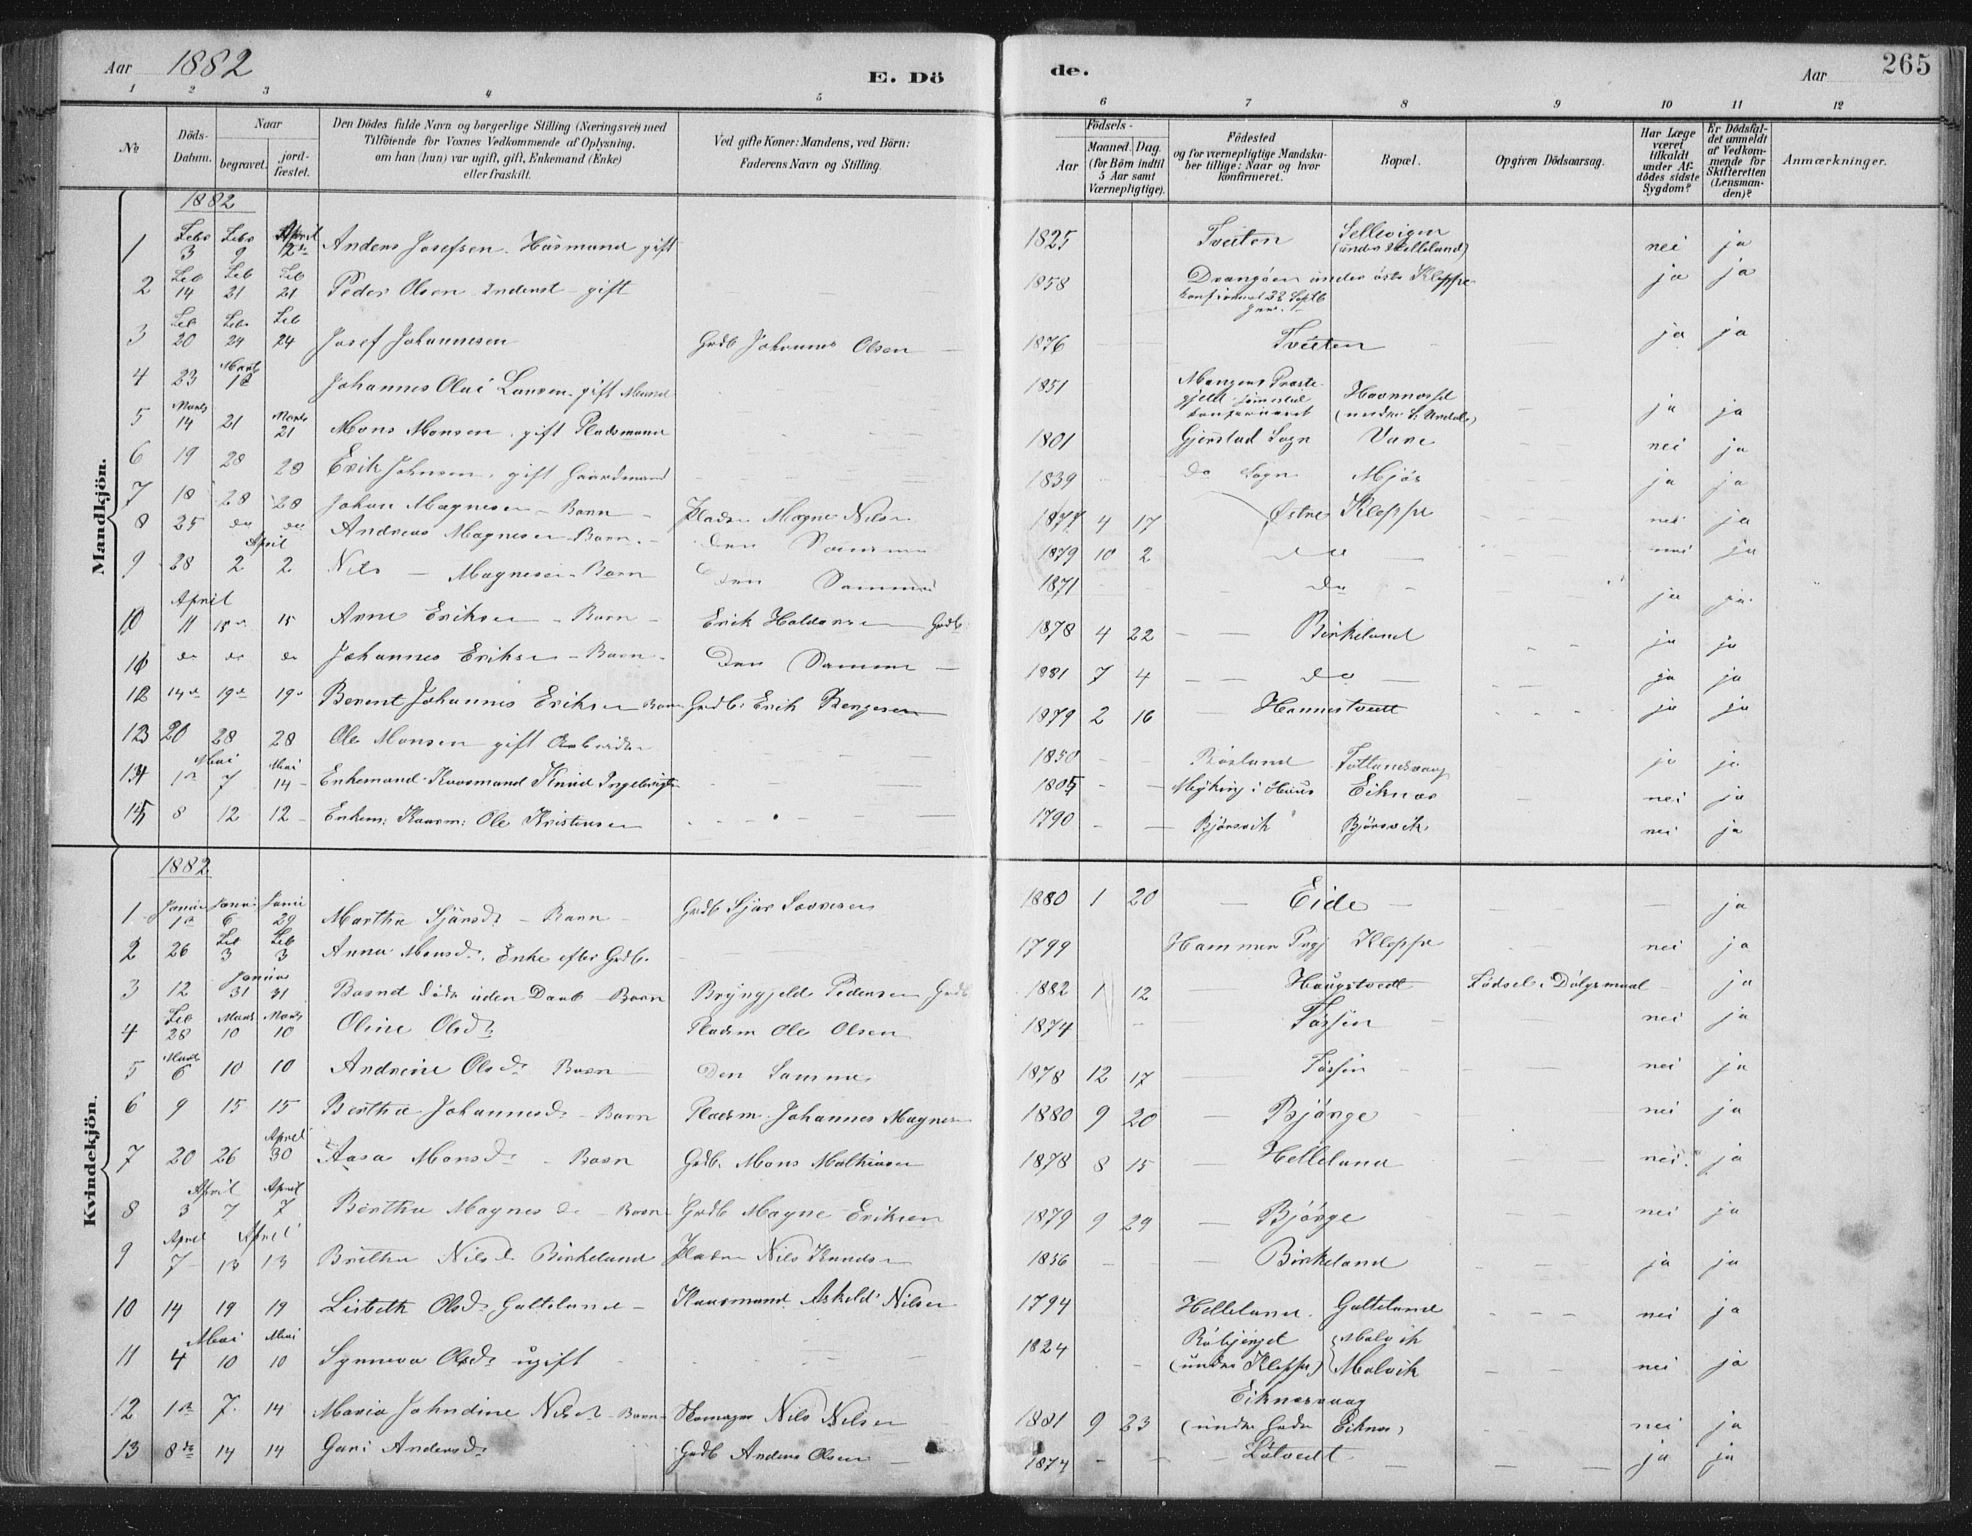 Aar 1882
E. Dö
de.
Aar
265
1 2 3 4 5 6 7 8 9 10 11 12
No
Döds-Datum.
Naar
begravet.
jord-fæstet.
Den Dödes fulde Navn og borgerlige Stilling (Næringsvei) med
Tilföiende for Voxnes Vedkommende af Oplysning,
om han (hun) var ugift, gift, Enkemand (Enke)
eller fraskilt.
Ved gifte Koner: Mandens, ved Börn:
Faderens Navn og Stilling.
Födsels-
Aar
Maaned. Dag.
(for Börn indtil
5 Aar samt
Værnepligtige).
Födested
og for værnepligtige Mandska-
ber tillige: Naar og hvor
konfirmeret.
Bopæl.
Opgiven Dödsaarsag.
Har Læge
været
tilkaldt
under Af-
dödes sidste
Sygdom?
Er Dödsfal-
det anmeldt
af Vedkom-
mende for
Skifteretten
(Lensman-
den)?
Anmærkninger.
Mandkjön.
1882
1 Febr 3 Febr 9 April 12te Anders Josefsen Huusmand gift 1825 Tveiten Sellevigen (under Helleland) nei ja
2 Feb 14 Feb 21 Feb 21 Peder Olsen Inderst gift 1858 Drangöen under östre Kleppe ja ja
3 Feb 20 Feb 24 Feb 24 Josef Johannesen Grdb Johannes Olsen 1876 Tveiten ja ja
4 23 Marts 12 Johannes Olai Larsen gift Mand 1851 Mangers Præste-gjeld ja ja
5 Marts 14 21 Marts 21 Mons Monsen gift Pladsmand 1801 Gjerstad Sogn nei ja
6 19 28 28 Erik Johnsen gift Gaardmand 1839 do Sogn Mjös ja ja
7 18 28 28 Johan Magnesen Barn Pladsm Magne Nilsen 1877 4 17 Östre Kleppe nei ja
8 25 do do Andreas Magnesen Barn Den Samme 1879 10 2 do nei ja
9 28 April 2 2 Nils Magnesen Barn Den Samme 1871 do ja ja
10 April 11 15de 15 Arne Eriksen Barn Erik Haldorsen Grdb 1878 4 22 Birkeland ja ja
11 do do do Johannes Eriksen Barn Den Samme 1881 7 4 do ja ja
12 14de 19de 19de Berent Johannes Eriksen Barn Grdb. Erik Bergesen 1879 2 16 Hannestvedt ja ja
13 20 28 28 Ole Monsen gift Arbeider 1850 Rösland Totlandsvaag ja ja
14 1te Mai 7 Mai 14 Enkemand Kaarmand Knud Ingebrigtsen 1805 Mÿking i Haus Eiknæs nei ja
15 8 12 12 Enkem: Kaarm: Ole Kristensen 1790 Björsvik Björsvik nei ja
Kvindekjön.
1882
1 Januar 1te Januar 6 Januar 29 Martha Sjursdr Barn Grdb Sjur Sjursen 1880 1 20 Eide ja
2 26 Feb 3 Feb 3 Anna Monsdr. Enke efter Grdb. 1799 Hammer Prgj Kleppe nei ja
3 12 Januar 31 31 Barnet döde uden Daab Barn Bryngjeld Pedersen Grdb 1882 1 12 Haugstvedt Födsel i Dölgsmaal ja
4 Feb 28 Marts 10 Marts 10 Oline Olsdr Pladsm Ole Olsen 1874 Fossen nei ja
5 Marts 6 10 10 Andrine Olsdr Barn Den Samme 1878 12 17 Fossen nei ja
6 9 15 15 Bertha Johannesdr Barn Pladsm. Johannes Magnesen 1880 9 20 Bjönge nei ja
7 20 26 April 30 Aasa Monsdr Barn Grdb. Mons Mathiasen 1878 8 15 Helleland nei ja
8 April 3 7 April 7 Bertha Magnesdr Barn Grdb Magne Eriksen 1879 9 29 Björge nei ja
9 April 7 April 13 13 Britha Nilsdr Birkeland Pladsm Nils Knudsen 1856 Birkeland ja ja
10 14 19 19 Lisbeth Olsdr Galteland Kaarmand Askild Nilsen 1794 Helleland. Galteland nei ja
11 Mai 4 10 Mai 10 Synneva Olsdr ugift 1824 (under Kleppe) Malvik Malvik nei ja
12 1te 7 14 Maria Johndine Nilsdr Barn Skomager Nils Nilsen 1881 9 23 Eiknæsvaag (under Grdn Eiknæs) nei ja
13 8de 14 14 Guri Andersdr Grdb Anders Olsen 1874 Lötvedt ja ja